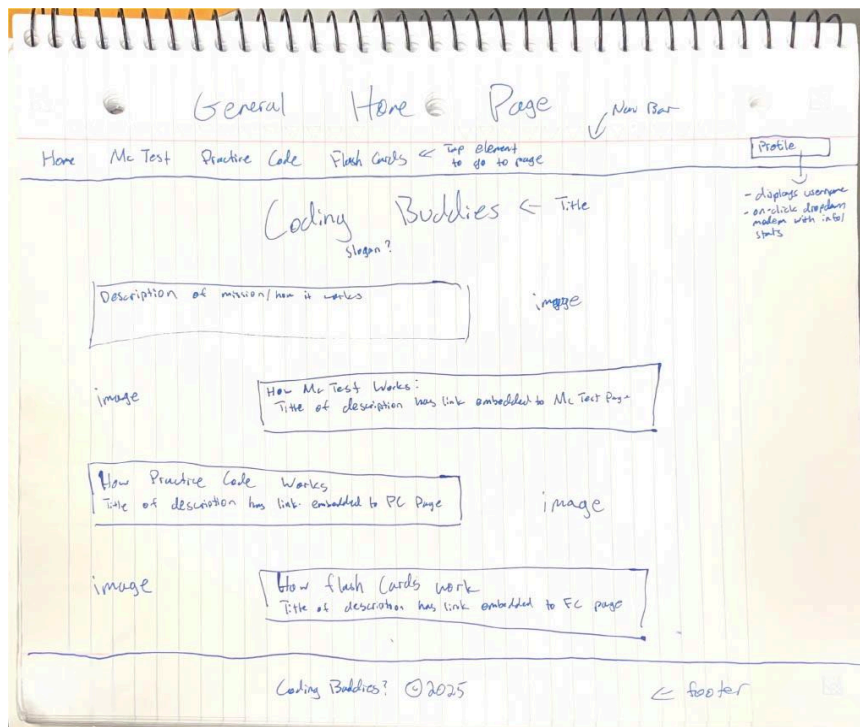 General Home Page
Nav Bar
Home Mc Test Practice Code Flash Cards ← Tap element to go to page
Profile
- displays username
- on-click dropdown
modem with info/
stats
Coding Buddies ← Title
slogan?
Description of mission/how it works
image
image
How Mc Test Works:
Title of description has link embedded to Mc Test Page
How Practice Code Works
Title of description has link embedded to PC Page
image
image
How flash Cards work
Title of description has link embedded to FC page
Coding Buddies? © 2025
← footer